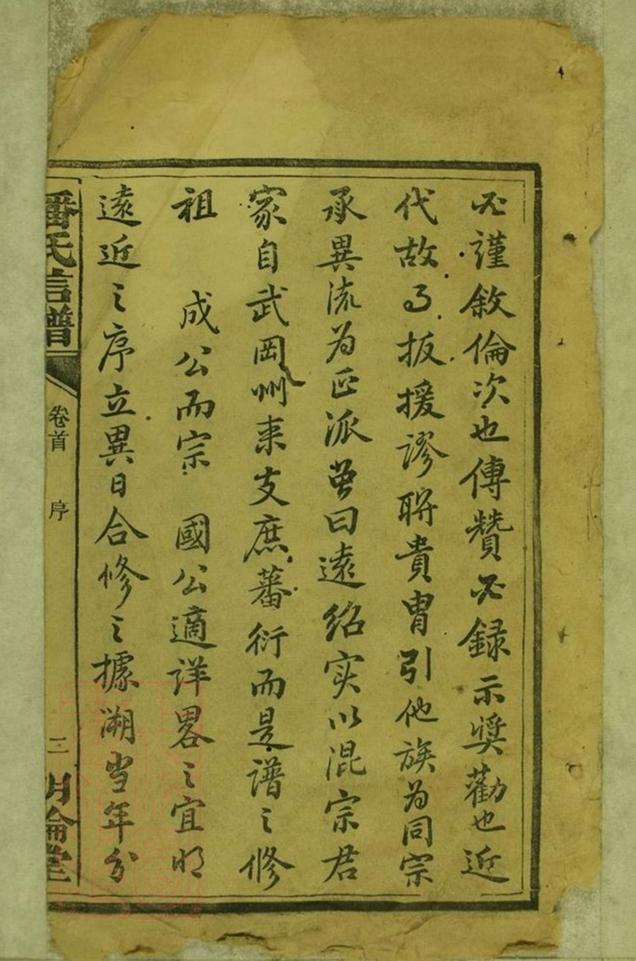 必謹敘倫次也傳贊必錄示奬勸也近
代故习扳援謬聨貴胄引他族為同宗
承異流為正派曾曰遠紹实以混宗君
家自武岡州来支庶蕃衍而是譜之修
祖 成公而宗 國公適詳畧之宜明
遠近之序立異日合修之據溯当年分
潘氏信譜
卷首 序
三
明倫堂